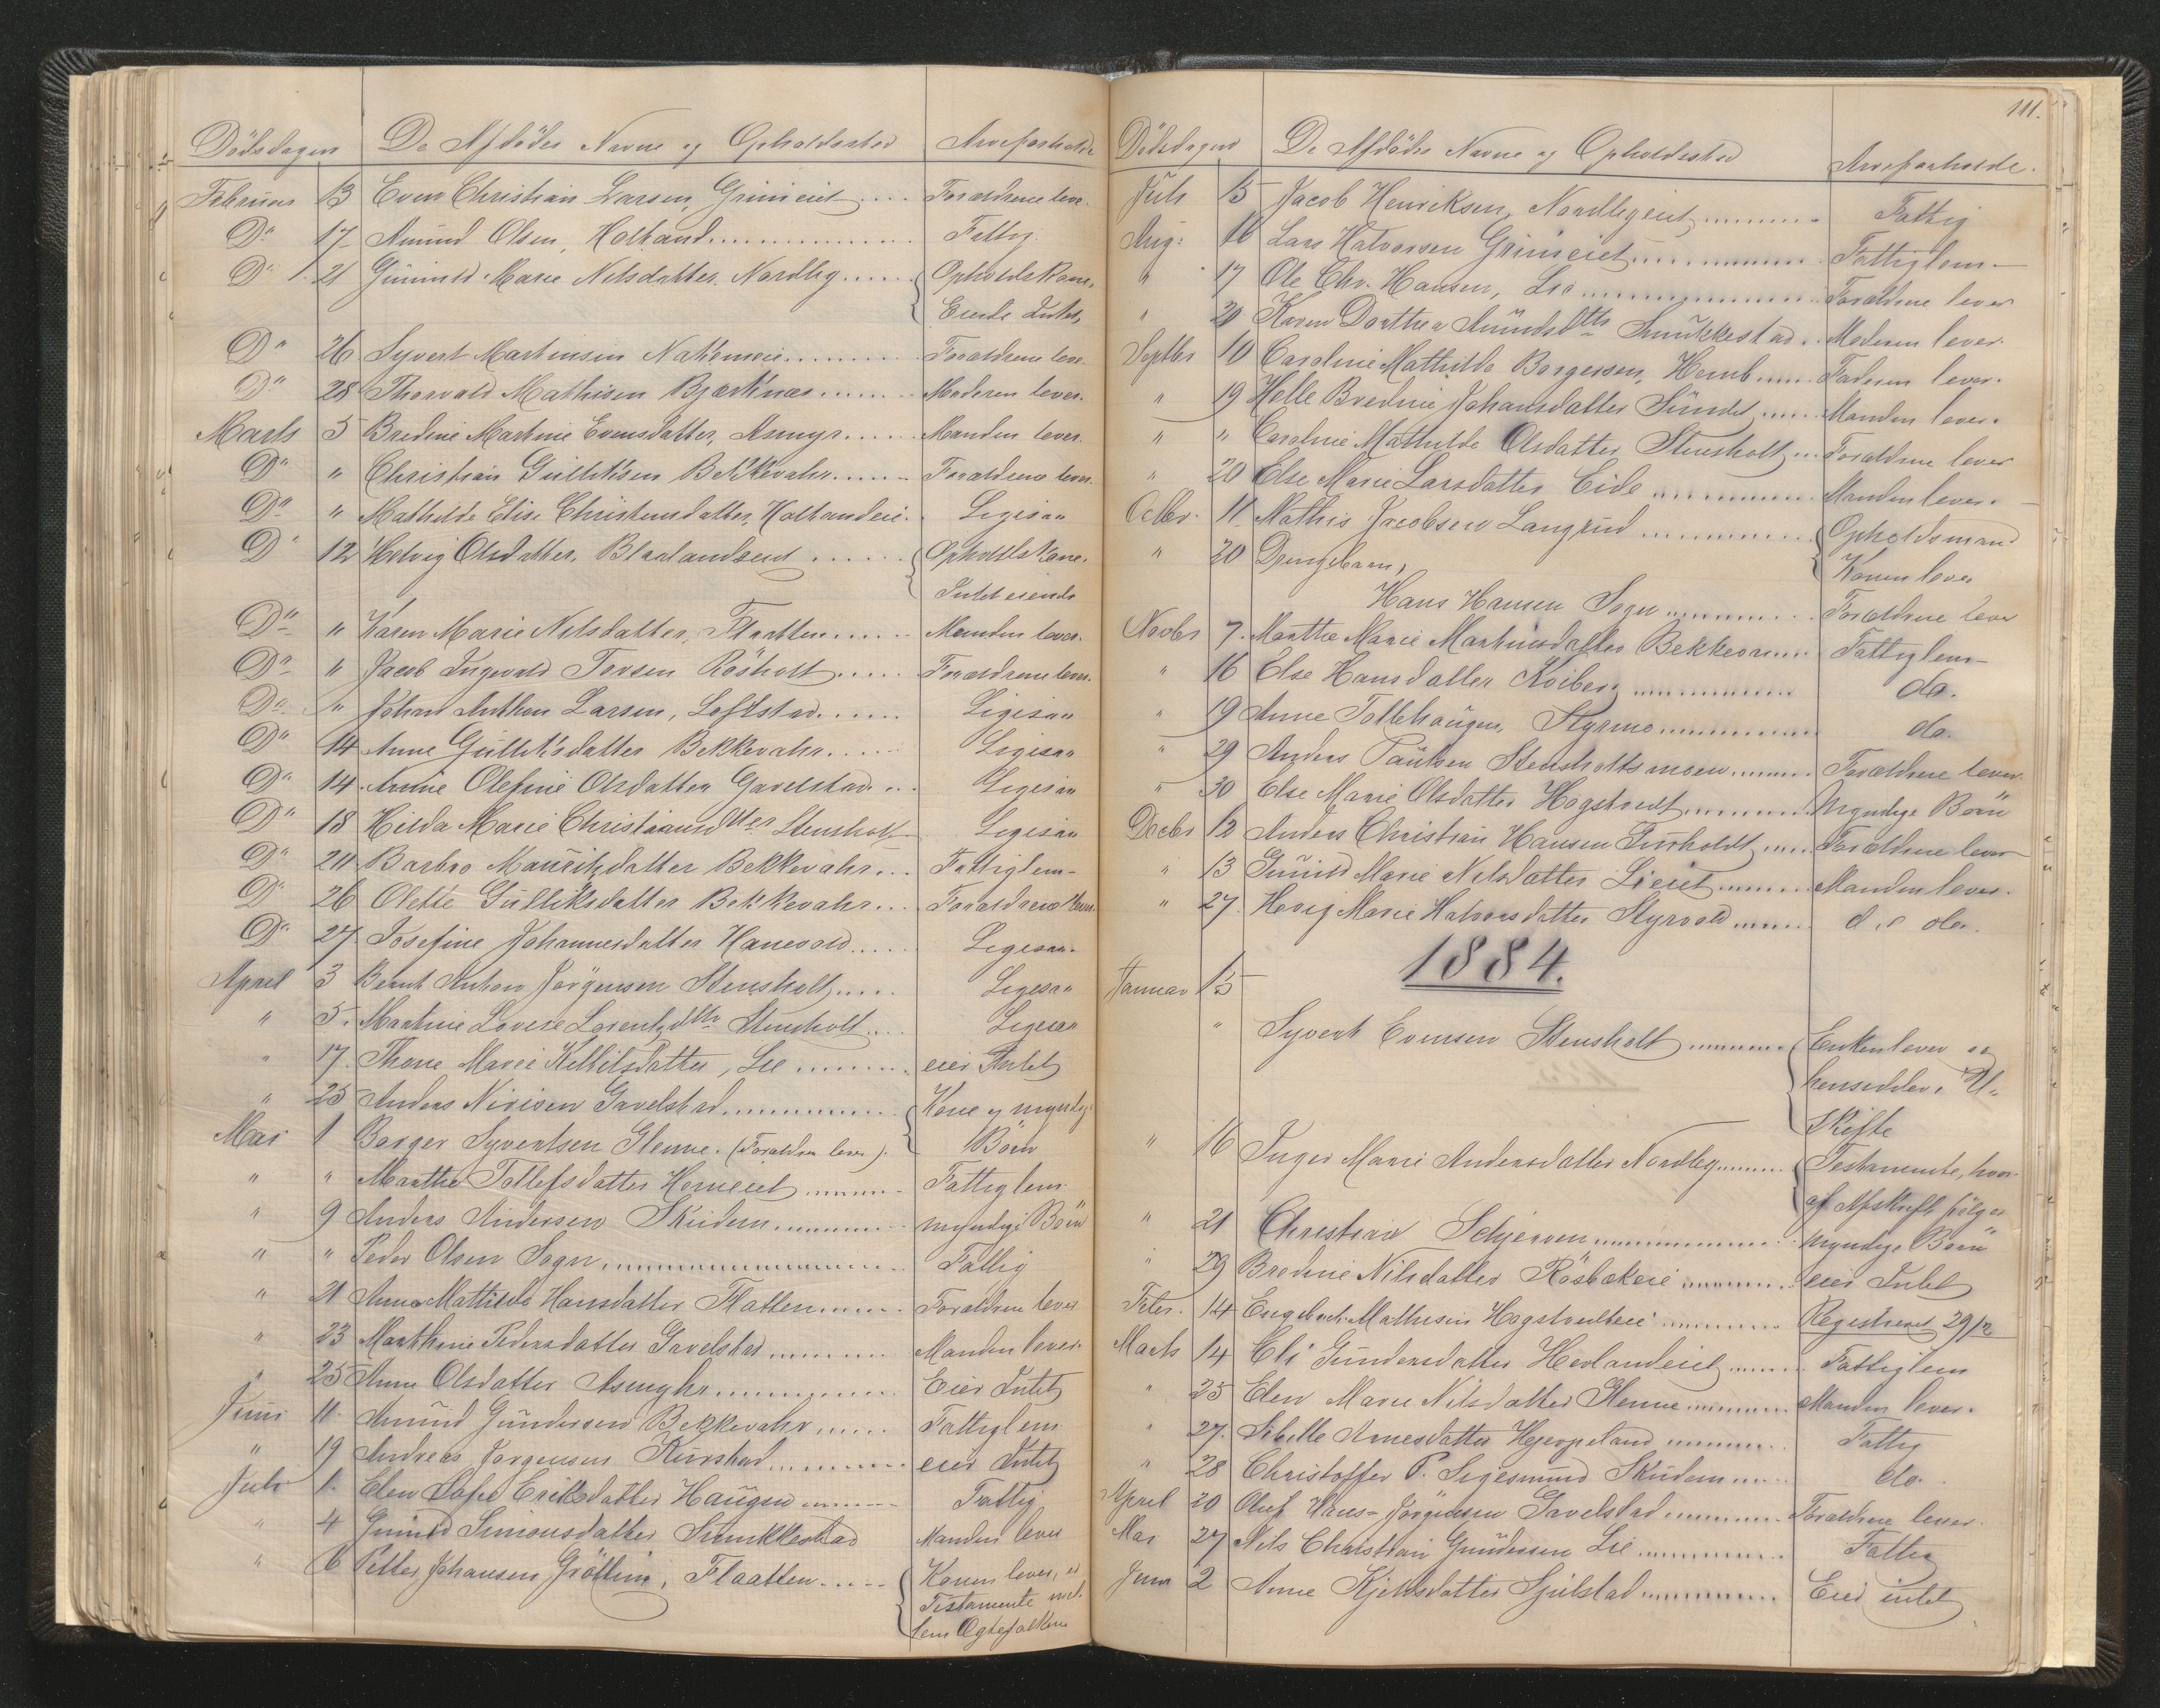 Dödsdagen De Afdödes Navne og Opholdssted Arveforholde
Februar 13 Even Christian Larsen, Grimeiet .... Forældrene leve.
Do 17 Amund Olsen, Holtand ........ Fattig.
Do 21 Gunnild Marie Nilsdatter Nordby ...... Opholdskone,
Eiende Intet,
Do 26 Syvert Martinsen ........ Forældrene leve.
Do 28 Thorvald Mathisen Bjerknes ....... Moderen lever.
Marts 5 Bredine Martine Evensdatter, Asmyr ...... Manden lever.
Do " Christian Gulliksen Bekkevahr ...... Forældrene lever.
Do " Mathilde Elise Christensdatter, Holtandeie. Ligesaa
Do 12 Helvig Olsdatter, ...... Opholdskone.
Intet eiende
Do " Karen Marie Nilsdatter, Flaatten ...... Manden lever.
Do " Jacob Ingevald Torsen Rösholt ..... Forældrene lever.
Do " Johan Anthon Larsen, Loftstad ...... Ligesaa
Do 14 Anne Gulliksdatter Bekkevahr ..... Ligesaa
Do 14. Annie Olefine Olsdatter Gavelstad ... Ligesaa
Do 18 Hilda Marie Christiansdtter Stensholt Ligesaa
Do 20 Barbro Mauritzdatter Bekkevahr ... Fattiglem-
Do 26 Olette Gulliksdatter Bekkevahr ... Forældrene lever.
Do 27 Josefine Johannesdatter Hanevold ..... Ligesaa.
April 3 Bernt Anton Jörgensen Stensholt ..... Ligesaa
" 5. Martine Lovise Lorentzdttr Stensholt .... Ligesaa
" 17. Thone Marie Kittilsdatter, Lie ........ eier Intet
" 25 Anders Nirisen Gavelstad ............ Kone og myndige
Mai 1 Borger Syvertsen Glenne. (Forældrn lever). Börn
" " Marthe Tollefsdatter Horneiet ........ Fattiglem
" 9 Anders Andersen Skudem .......... myndige Börn
" " Peder Olsen Sogn ................ Fattig
" 21 Anna Mathilde Hansdatter Flatten ........ Forældrene lever
" 23 Marthine Pedersdatter Gavelstad .......... Manden lever.
" 25 Anne Olsdatter Asmyhr ............ Eier Intet
Juni 11. Amund Gundersen Bekkevahr ...... Fattiglem
" 19 Andreas Jörgensen ............ eier Intet
Juli 1. Elen Sofie Eriksdatter Haugen ........ Fattig
" 4 Gunild Simonsdatter Smukkestad Manden lever
" 6 Petter Johansen Gröttin, Flaatten ...... Konen lever, er
Testamente mel-
lem Ægtefolkene
111.
Dödsdagen De Afdödes Navne og Opholdssted Arveforholde.
Juli 15 Jacob Henriksen, Nordbyeiet .......... Fattig
Aug: 16 Lars Halvorsen Grimeiet ............ Fattiglem-
" 17 Ole Chr. Hansen, Lie .............. Forældrene lever
" 20 Karen Dorthea Amundsdttr Smukkestad . Moderen lever.
Septbr 10 Caroline Mathilde Borgersen, Homb ..... Faderen lever.
" 19 Helle Bredine Johansdatter Sundet ..... Manden lever.
" " Caroline Mathilde Olsdatter Stensholt ... Forældrene lever
" 20 Else Marie Larsdatter Eide ........... Manden lever.
Octbr. 11. Mathis Jacobsen Langrud ............ Opholdsmand
Konen lever
" 20 Drengebarn,
Hans Hansen Sogn .......... Forældrene lever
Novbr 7. Marthe Marie Martinsdatter Bekkevar .... Fattiglem-
" 16 Else Hansdatter Kviberg ............ do.
" 19 Anne Tollehaugen, Styrmo ............. do.
" 29 Anders Paulsen Stensholtsmoen ........ Forældrene lever
" 30 Else Marie Olsdatter Hagstvedt ......... Myndige Börn
Decbr 12 Anders Christian Hansen Furholdt ..... Forældrene lever
" 13 Gunild Marie Nilsdatter Lieeiet ......... Manden lever.
" 27. Hevig Marie Halvorsdatter Styrvold ........ do do.
1884.
Januar 15
" Syvert Evensen Stensholt .......... Enken lever og
hensidder i U-
Skifte
" 16 Inger Marie Andersdatter Nordby ........ Testamente, hvor-
af Afskrift fölger
" 21 Christian Schjerven ................ myndige Börn
" 29 Bredine Nilsdatter Rösbækeie .......... eier Intet
Febr. 14 Engebret Mathisen Hagstvedteie ........... Registreret 29/2
Marts 14 Eli Gundersdatter Hevlandeiet ........ Fattiglem
" 25 Elen Marie Nilsdatter Glenne ........... Manden lever.
" 27. Sibille Arnesdatter Hjerpeland .......... Fattig
" 28 Christoffer P. Sigesmund Skudem ...... do.
April 20 Oluf Hans-Jörgensen Gavelstad .......... Forældrene lever.
Mai 27 Nils Christian Gundersen Lie ............ Fattig
Juni 2 Anne Kjeldsdatter Sjulstad ............ Eied intet